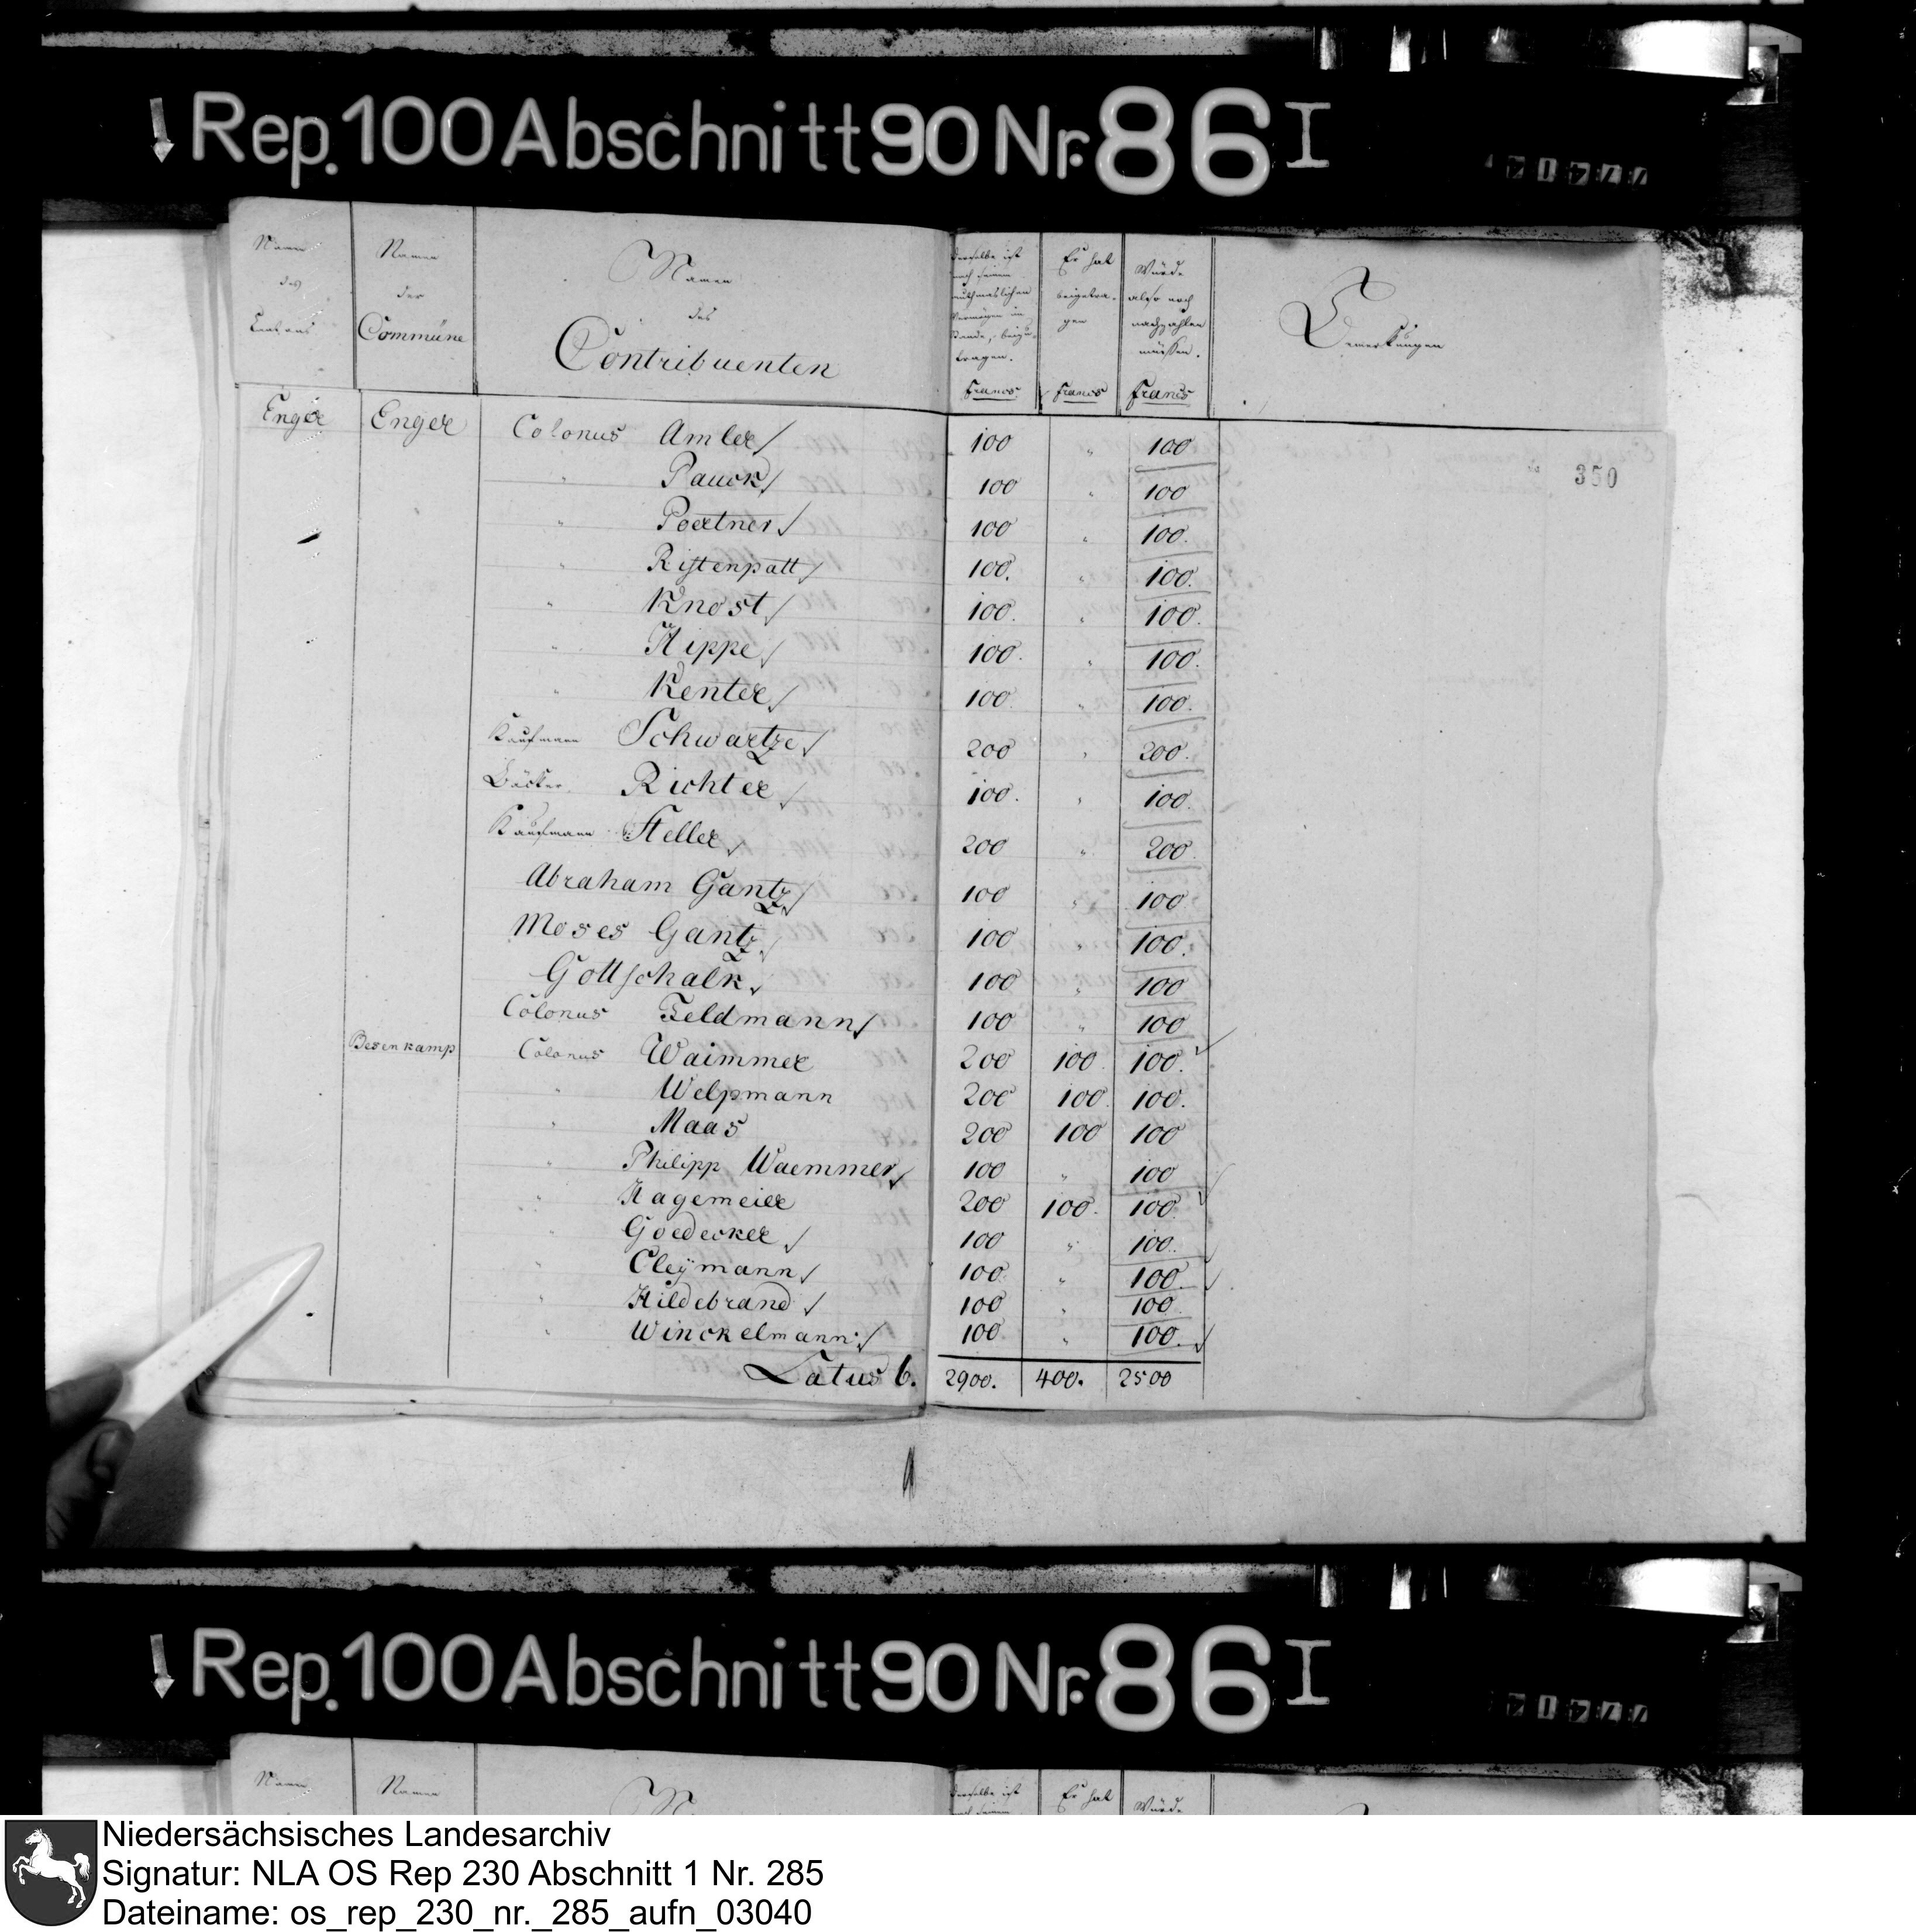 Rep. 100 Abschnitt 90 Nr. 86 I
Namen des Cantons
Namen der Commüne
Namen des Contribuenten
Derselbe ist nach seinem muthmaslichen Vermögen im Stande, beizutragen. Francs
Er hat beigetragen Francs
Würde also noch nachzahlen müssen. Francs
Bemerkungen
350
Enger Enger Colonus Amler 100 " 100
" Pauck 100 " 100
" Poertner 100 " 100.
" Ristenpatt 100. " 100.
" Knost 100. " 100.
" Hippe 100. " 100.
" Kenter 100. " 100.
Kaufmann Schwartze 200 " 200.
Bäcker Richter 100. " 100.
Kaufmann Heller 200 " 200.
Abraham Gantz 100 " 100.
Moses Gantz 100 " 100.
Gottschalk 100 " 100
Colonus Feldmann 100 " 100
Besenkamp Colonus Waimmer 200 100 100.
" Welpmann 200 100. 100.
" Maas 200 100 100
" Philipp Waemmer 100 " 100
" Hagemeier 200 100. 100.
" Goedecker 100 " 100.
" Cleÿmann 100 " 100.
" Hildebrand 100 " 100
" Winckelmann 100 " 100.
Latus 6. 2900. 400. 2500
Rep. 100 Abschnitt 90 Nr. 86 I
Namen
Namen
Derselbe ist
nach seinem
Er hat
Würde
Niedersächsisches Landesarchiv
Signatur: NLA OS Rep 230 Abschnitt 1 Nr. 285
Dateiname: os_rep_230_nr._285_aufn_03040